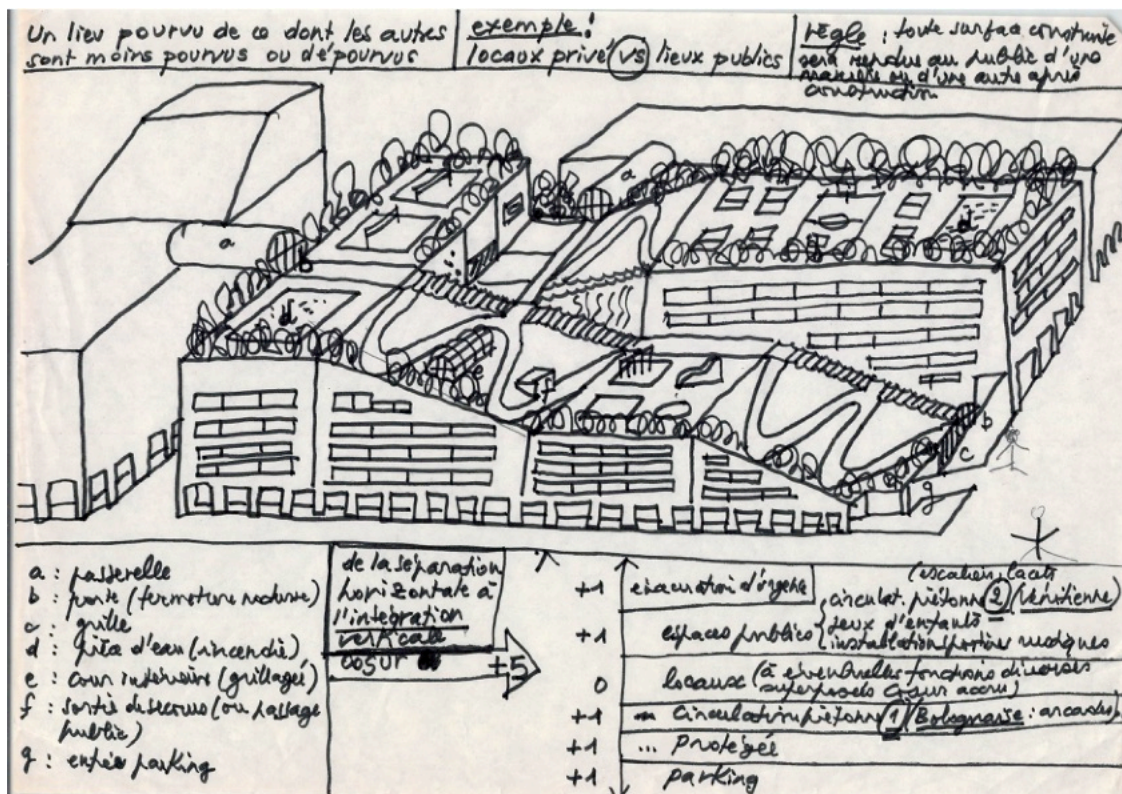 Un lieu pourvu de ce dont les autres
sont moins pourvus ou dépourvus
exemple :
locaux privé vs lieux publics
règle : toute surface construite
sera rendue au public d'une
manière ou d'une autre après
construction.
a
b
a
d
d
e
f
b
c
g
a : passerelle
b : porte (fermeture nocturne)
c : grille
d : pièce d'eau (incendie)
e : cour intérieure (grillagée)
f : sortie de secours (ou passage
public)
g : entrée parking
de la séparation
horizontale à
l'intégration
verticale
+5
+1 évacuation d'urgence
(escaliers, lacets
+1 espaces publics
circulat. piétonne 2 (Vénitienne)
jeux d'enfants
0 locaux (à éventuelles fonctions diverses
superposés
+1 circulation piétonne 1 (Bolognaise : arcades)
+1 ... protégée
+1 parking